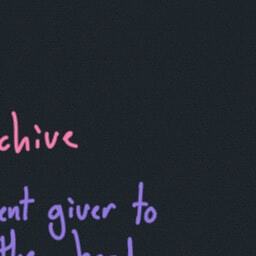 chive
ent giver to
the